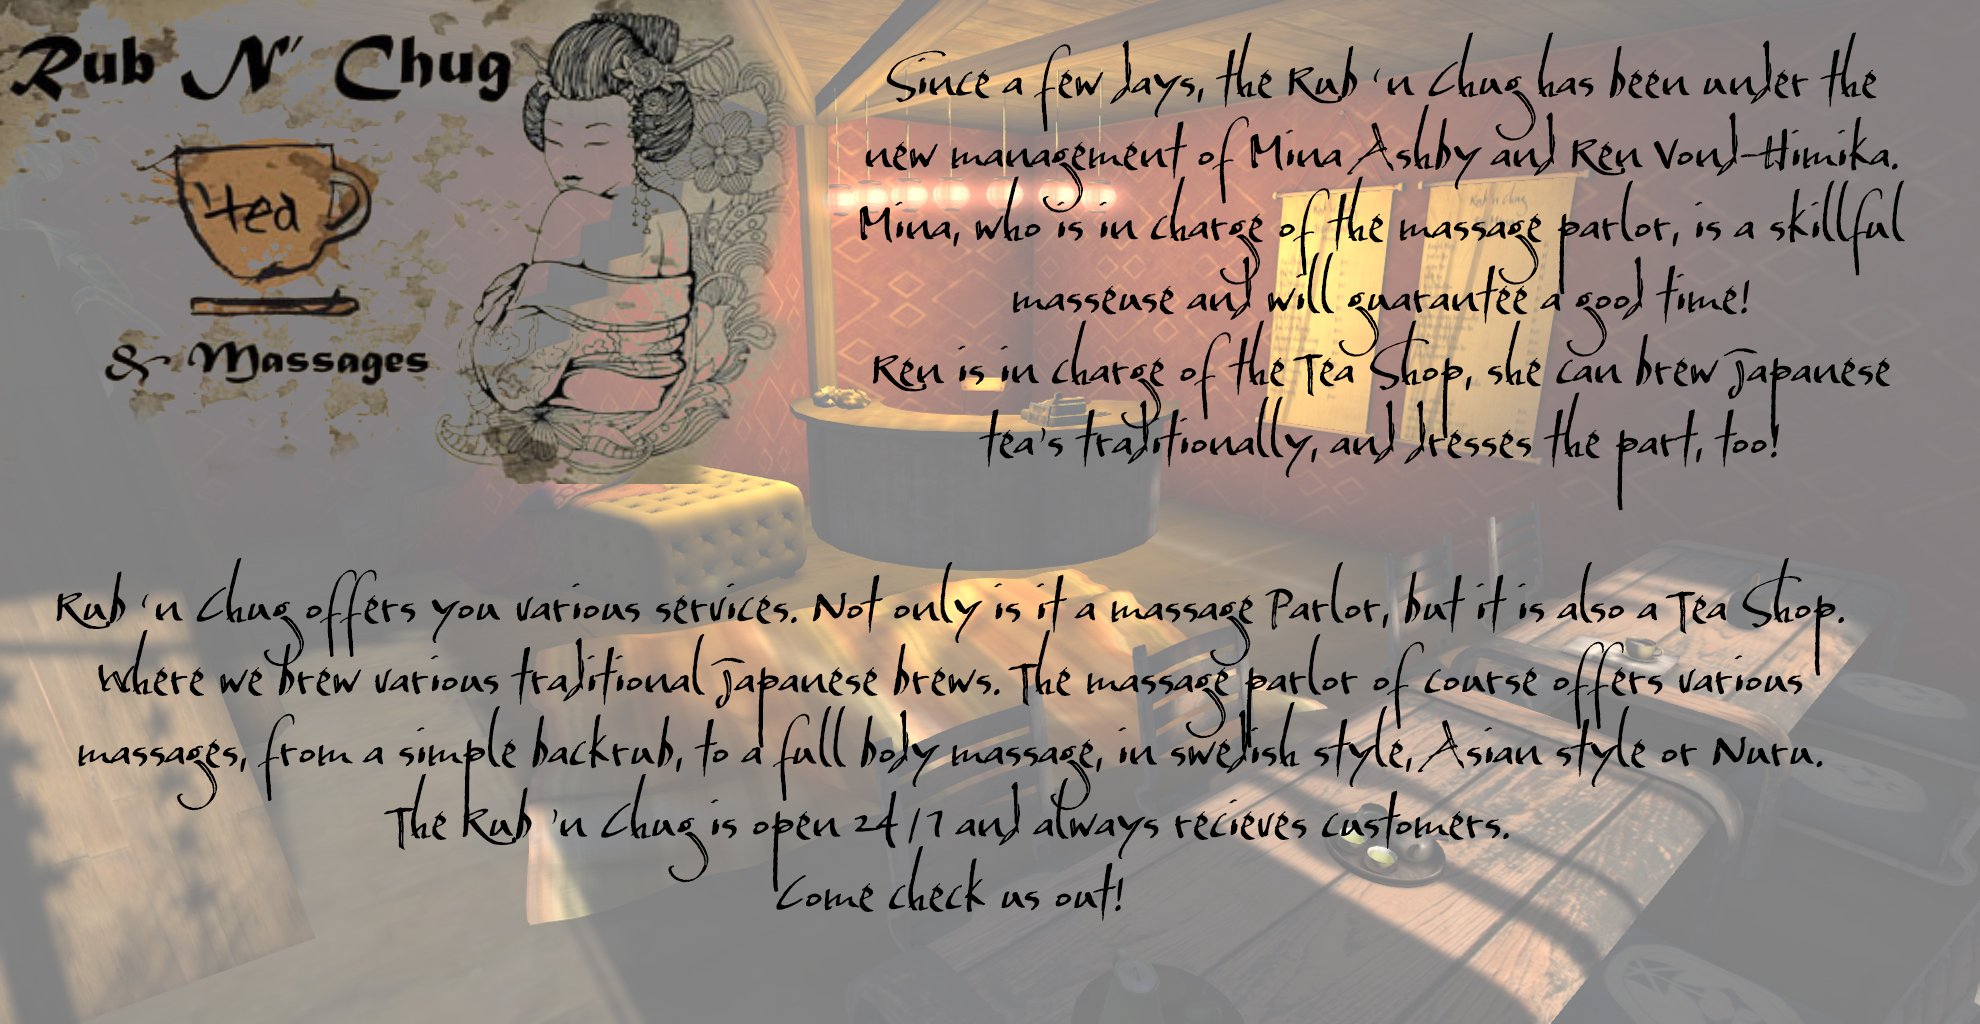 Rub N' Chug
tea
& Massages
Since a few days, the Rub 'n Chug has been under the
new management of Mina Ashby and Ren Vond-Himika.
Mina, who is in charge of the massage parlor, is a skillful
masseuse and will guarantee a good time!
Ren is in charge of the Tea Shop, she can brew Japanese
tea's traditionally, and dresses the part, too!
Rub 'n Chug offers you various services. Not only is it a massage Parlor, but it is also a Tea Shop.
Where we brew various traditional Japanese brews. The massage parlor of course offers various
massages, from a simple backrub, to a full body massage, in swedish style, Asian style or Nuru.
The Rub 'n Chug is open 24/7 and always recieves customers.
Come check us out!